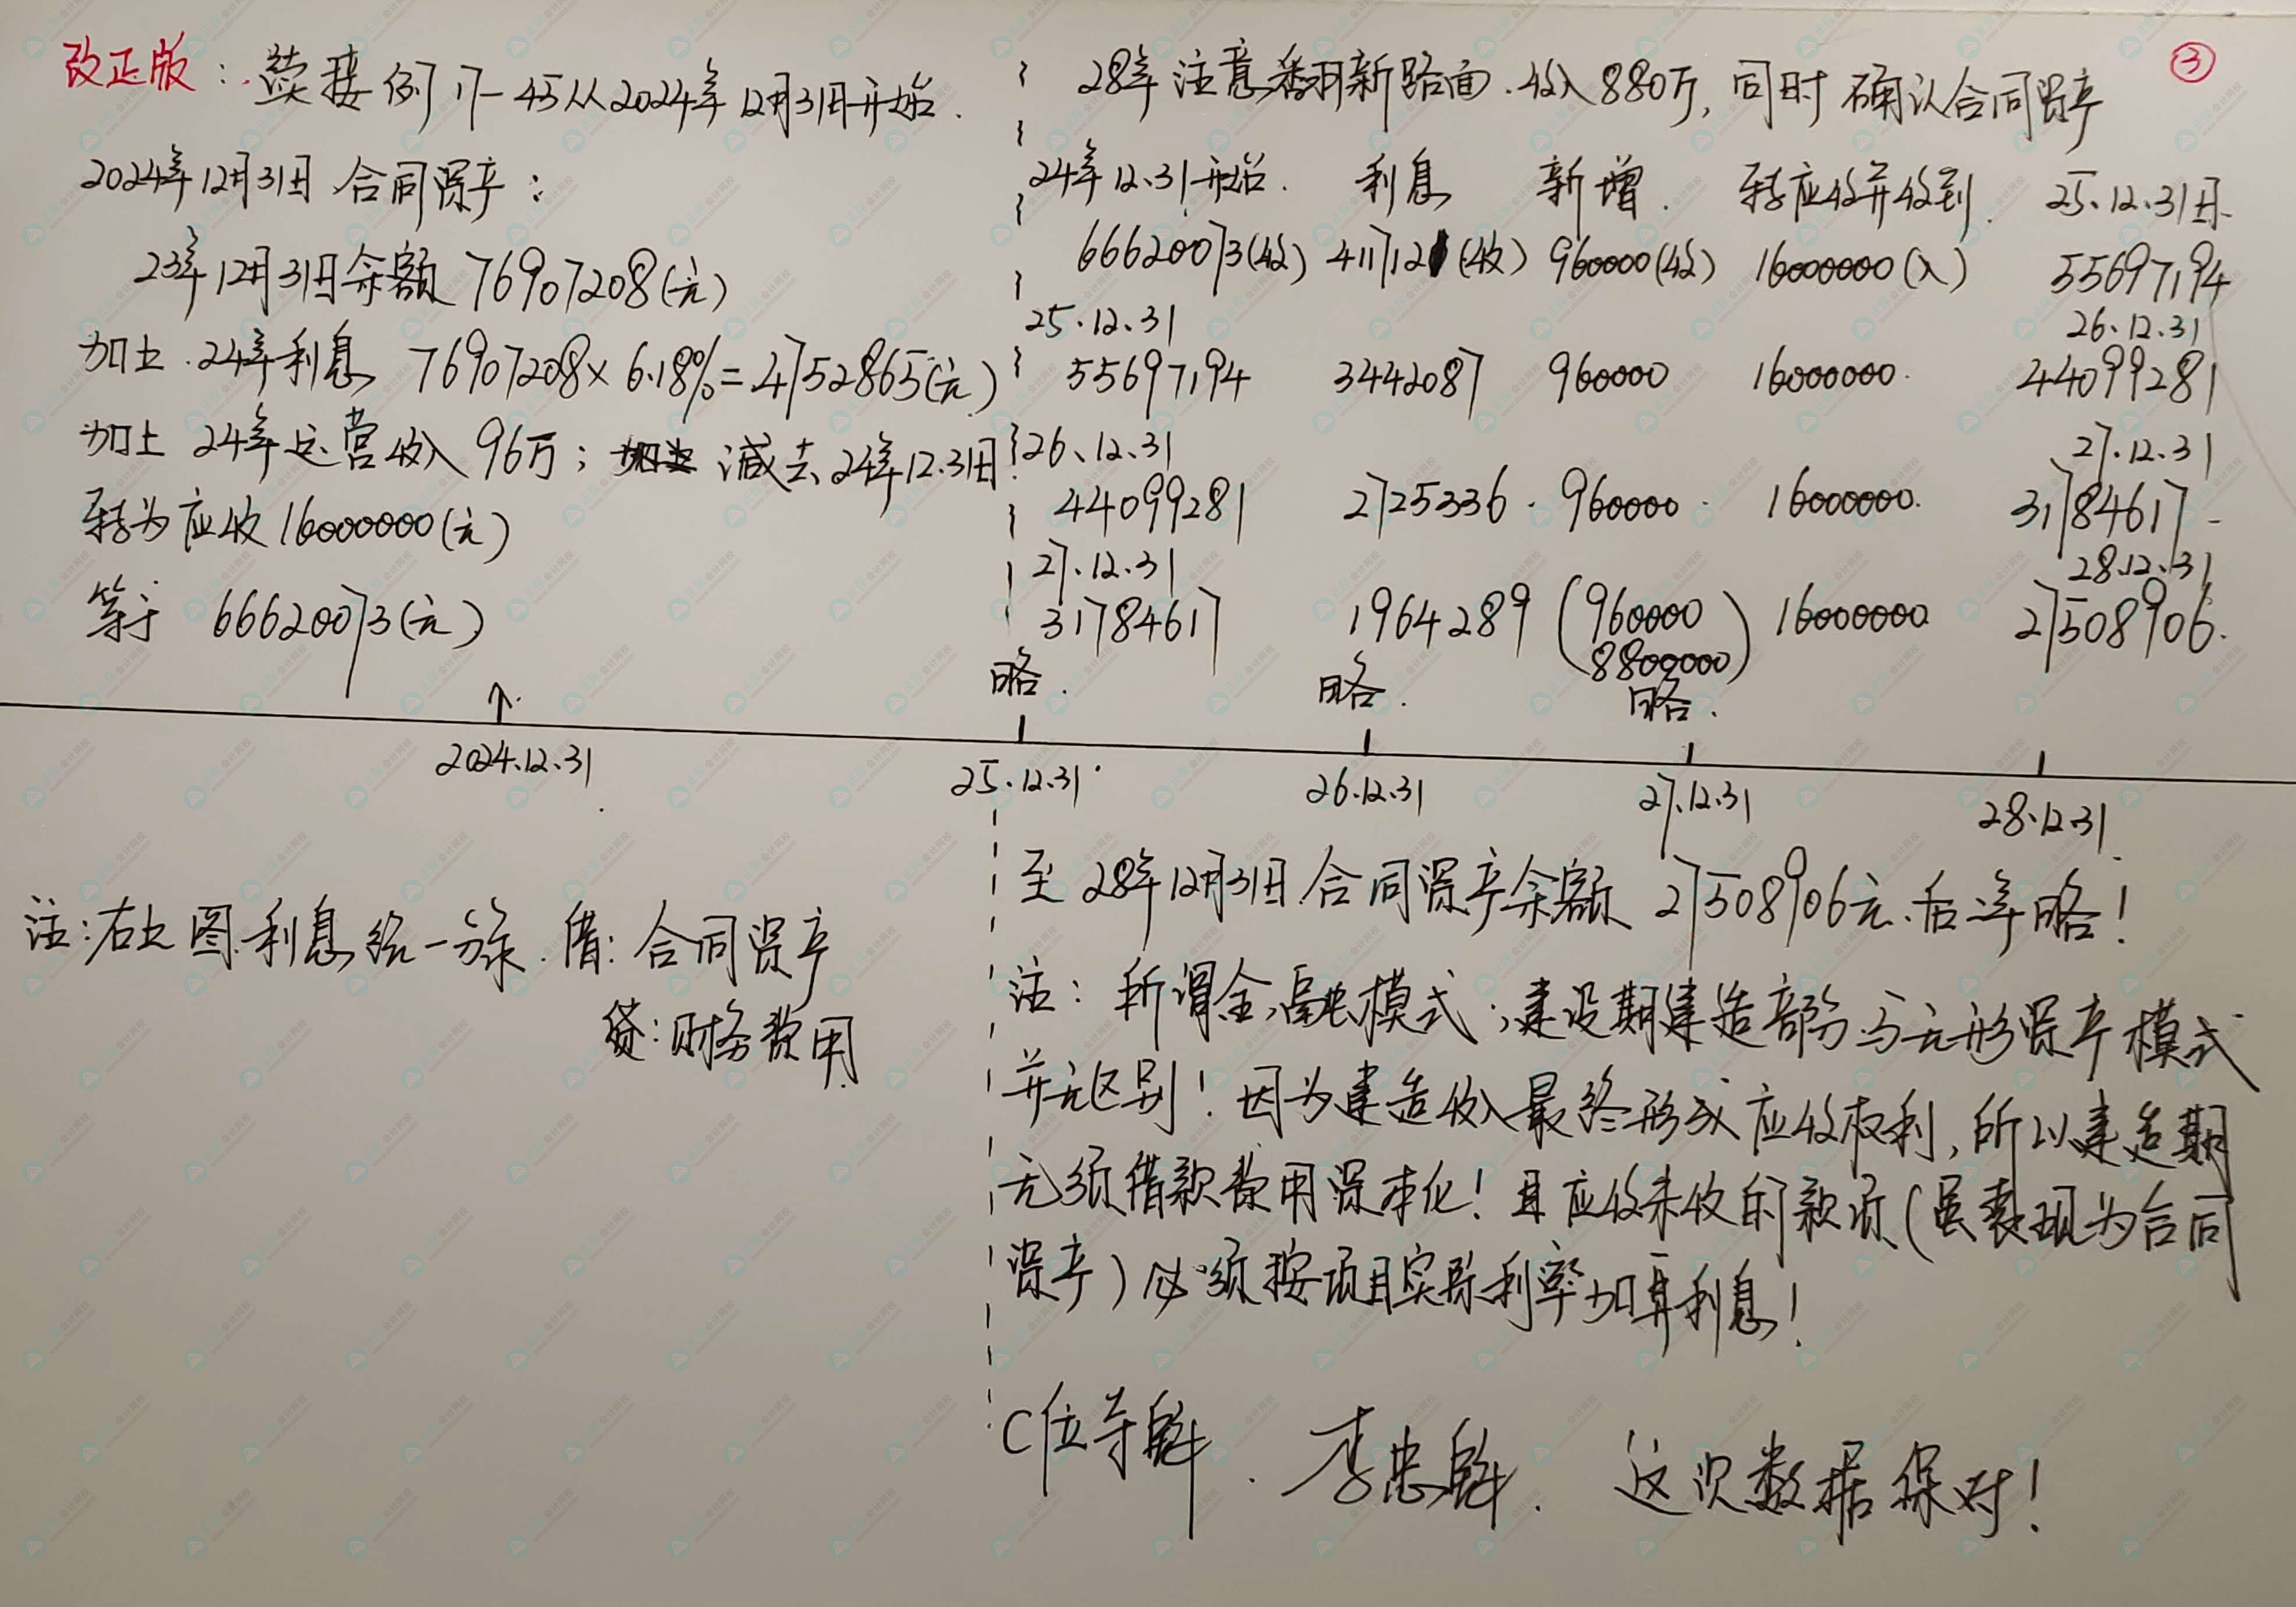 改正版：续接例17-45从2024年12月31日开始.
2024年12月31日合同资产：
23年12月31日余额76907208(元)
加上.24年利息 76907208×6.18%=4752865(元)
加上 24年运营收入96万；减去24年12.31日
转为应收16000000(元)
等于 66620073(元)
③
28年注意翻新路面.收入880万,同时确认合同资产
24年12.31开始. 利息 新增. 转应收并收到. 25.12.31日
66620073(收) 4117121(收) 960000(收) 16000000(入) 55697194
25.12.31 26.12.31
55697194 3442087 960000 16000000. 44099281
26.12.31 27.12.31
44099281 2725336. 960000. 16000000. 31784617
27.12.31 28.12.31
31784617 1964289 (960000 16000000 27508906.
8800000)
略. 略. 略.
2024.12.31 25.12.31 26.12.31 27.12.31 28.12.31
注:右上图.利息统一分录.借:合同资产
贷:财务费用
至28年12月31日.合同资产余额 27508906元.后年略!
注：所谓金融模式;建设期建造部分与无形资产模式
并无区别!因为建造收入最终形成应收权利,所以建造期
无须借款费用资本化!且应收未收的款项(虽表现为合同
资产)必须按项目实际利率加算利息!
C位导师. 李忠魁. 这次数据保对!
会计网校